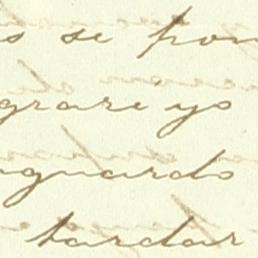 s se pon
grare yo
nguardo
tardar